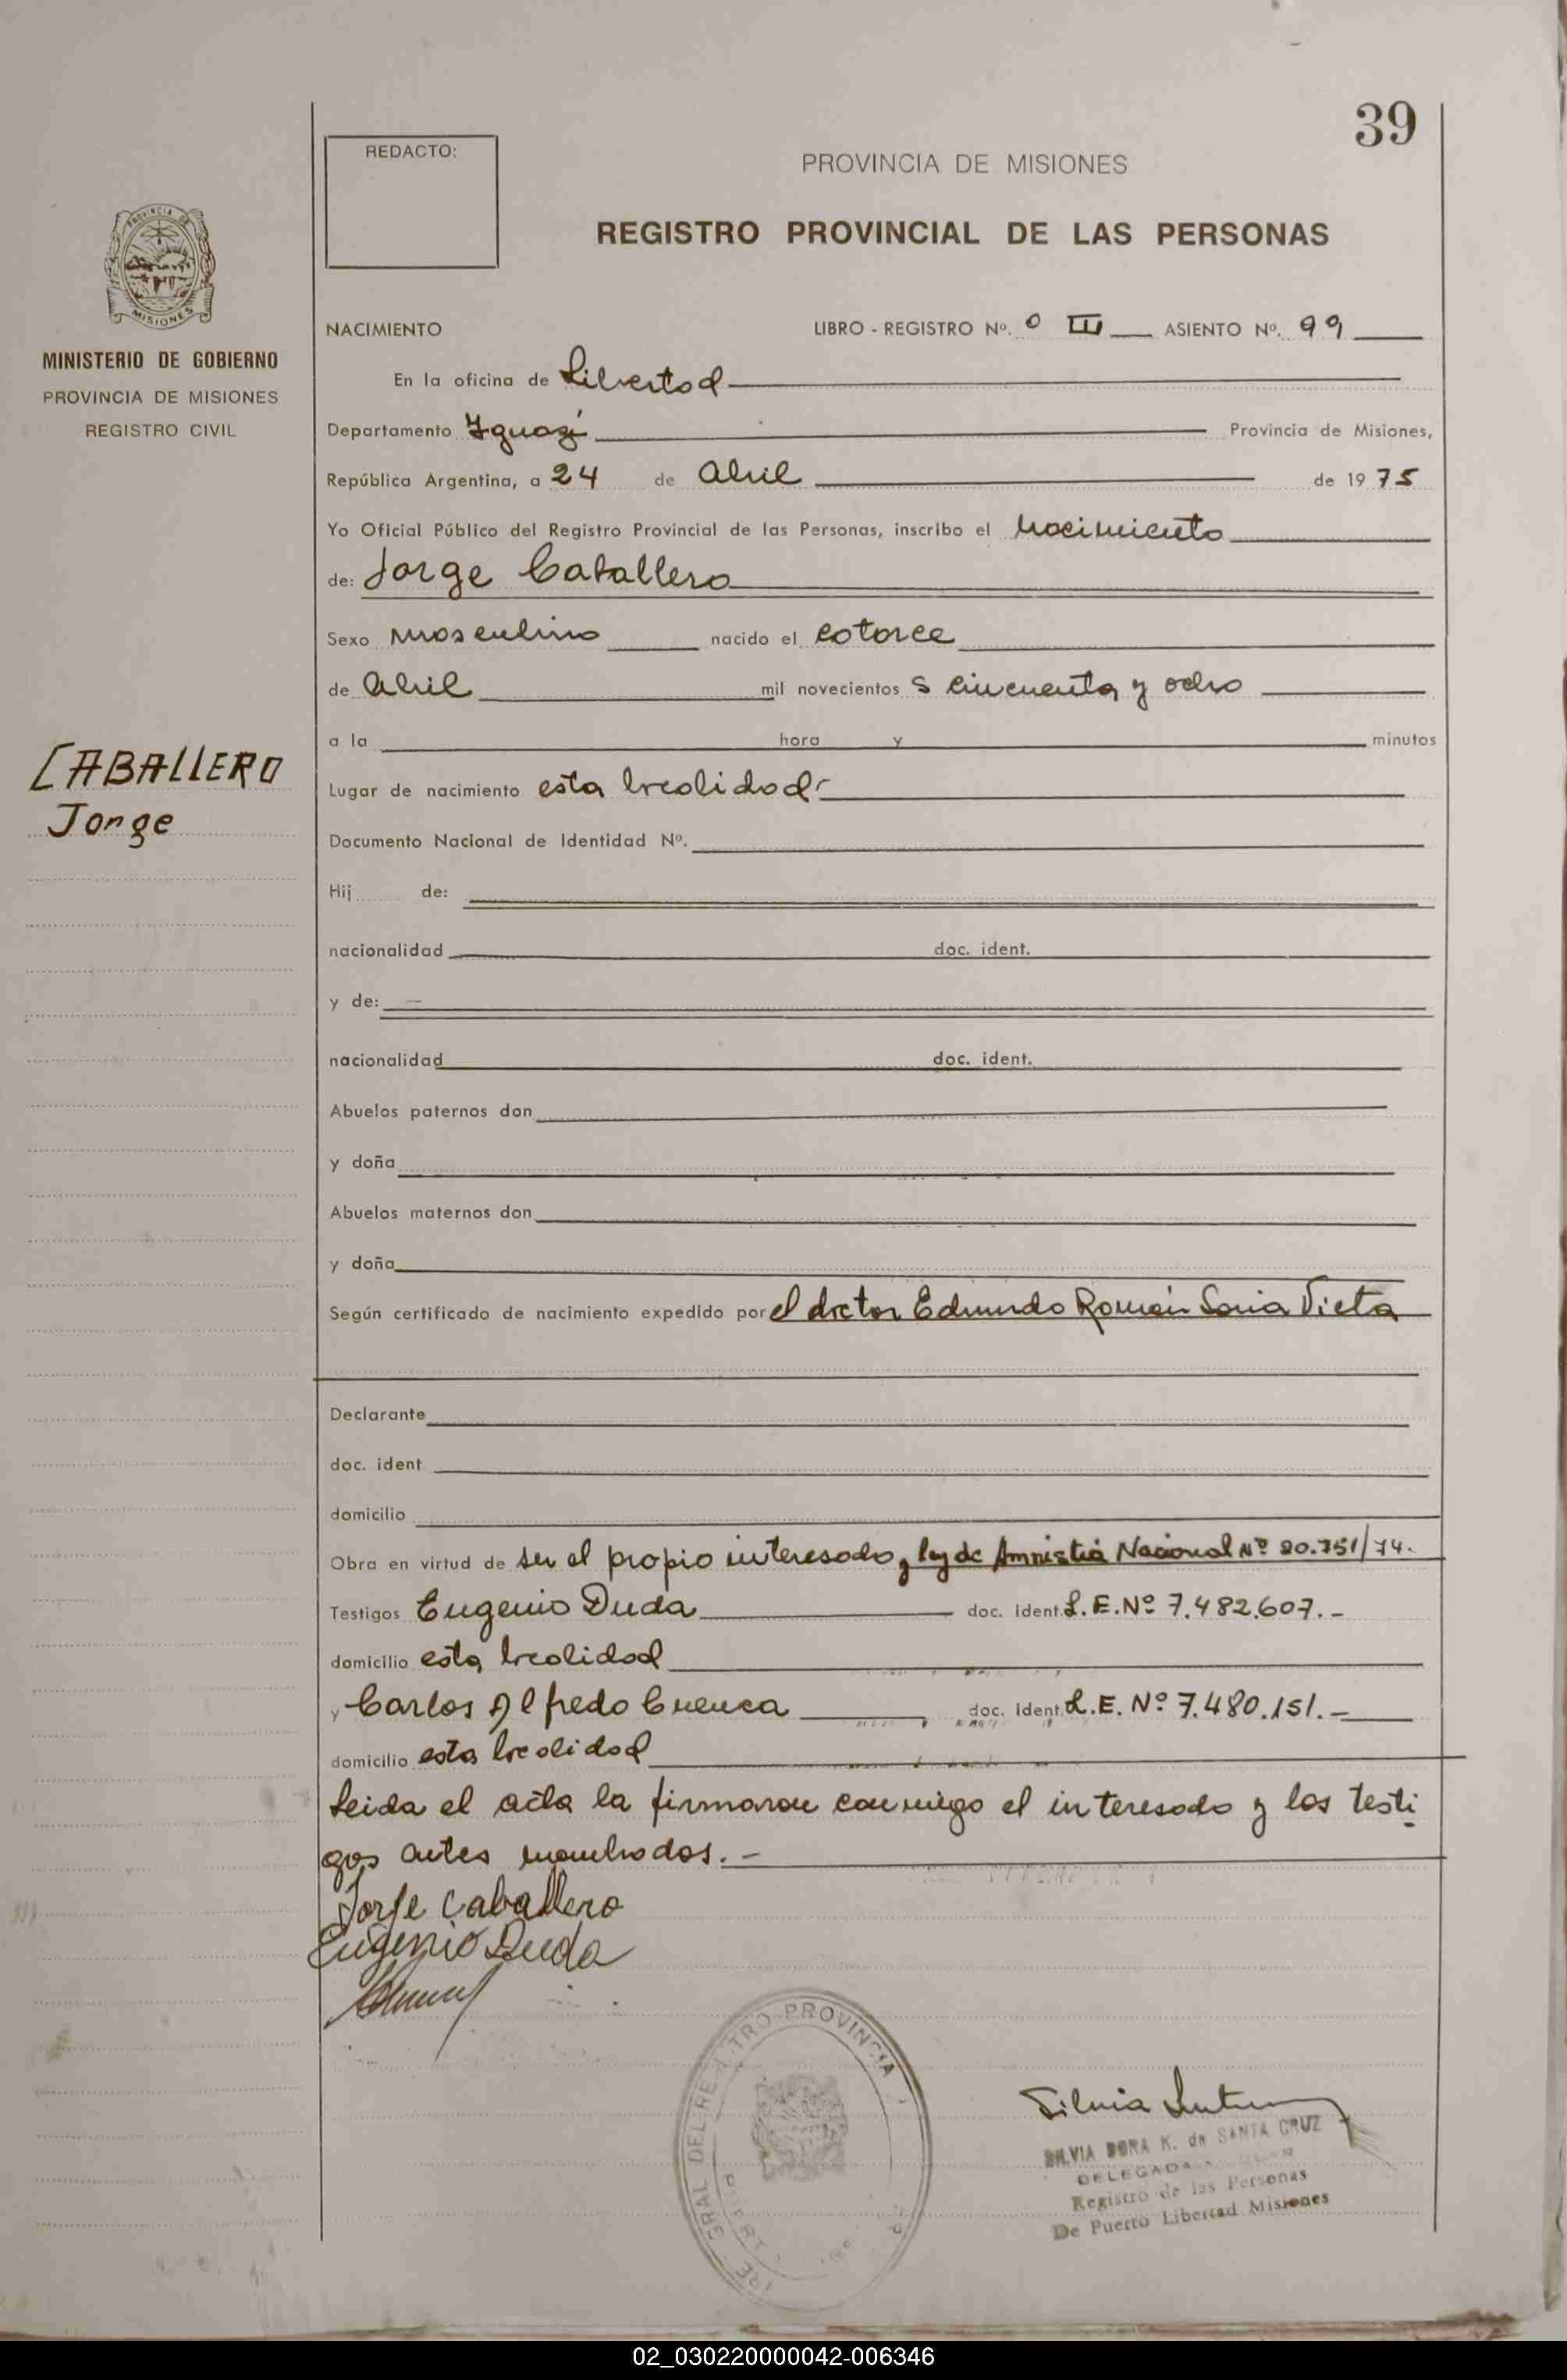 39
REDACTO:
PROVINCIA DE MISIONES
REGISTRO PROVINCIAL DE LAS PERSONAS
PROVINCIA DE
MISIONES
MINISTERIO DE GOBIERNO
PROVINCIA DE MISIONES
REGISTRO CIVIL
NACIMIENTO LIBRO - REGISTRO Nº. 0 III ASIENTO Nº. 99
En la oficina de Libertad
Departamento Iguazú Provincia de Misiones,
República Argentina, a 24 de Abril de 1975
Yo Oficial Público del Registro Provincial de las Personas, inscribo el nacimiento
de: Jorge Caballero
Sexo masculino nacido el catorce
de Abril mil novecientos s cincuenta y ocho
a la hora y minutos
CABALLERO
Jorge
Lugar de nacimiento esta localidad
Documento Nacional de Identidad Nº.
Hij de:
nacionalidad doc. ident.
y de:
nacionalidad doc. ident.
Abuelos paternos don
y doña
Abuelos maternos don
y doña
Según certificado de nacimiento expedido por el doctor Edmundo Román Soria Vieta
Declarante
doc. ident
domicilio
Obra en virtud de ser el propio interesado, ley de Amnistia Nacional Nº 20.751/74.
Testigos Eugenio Duda doc. ident. L.E. Nº 7.482.607.-
domicilio esta localidad
y Carlos Alfredo Cuenca doc. ident. L.E. Nº 7.480.151.-
domicilio esta localidad
Leida el acta la firmaron conmigo el interesado y los testi
gos antes nombrados.-
Jorge Caballero
Eugenio Duda
Silvia
SILVIA DORA K. de SANTA CRUZ
DELEGADA
Registro de las Personas
De Puerto Libertad Misiones
GRAL DEL REGISTRO PROVINCIA
02_030220000042-006346